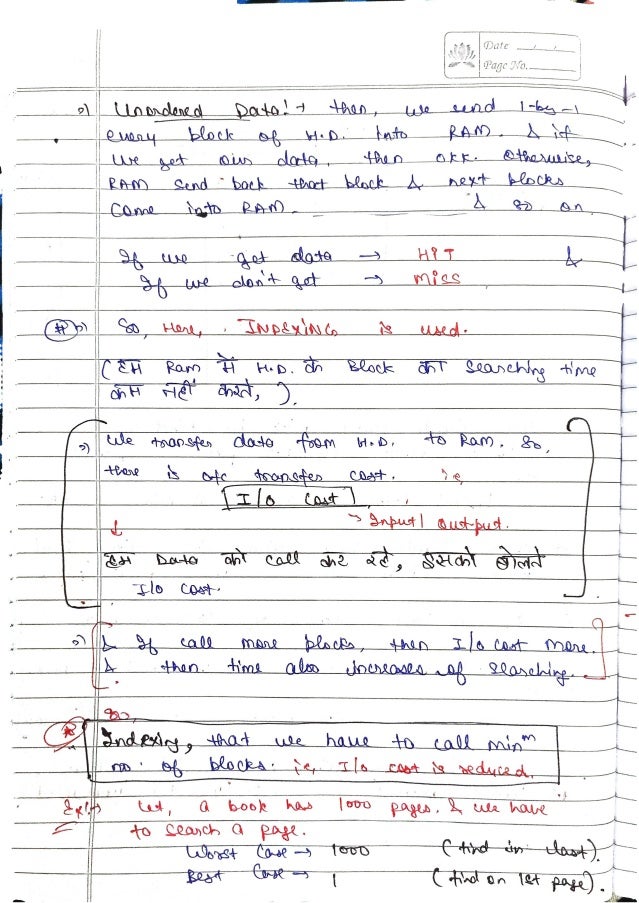 Date
Page No.
Unordered Data:→ then, we send 1-by-1
every block of H.D. into RAM. & if
we get our data, then okk. Otherwise,
RAM send back that block & next blocks
come into RAM. & so on
If we get data → HIT &
If we don't got → miss
# So, Here, INDEXING is used.
(हम Ram में H.D. के Block का Searching time
कम नहीं करते, ).
We transfer data from H.D. to Ram. So,
there is a/c transfer cost. i.e,
I/o Cost
→ Input/ output.
↓
हम Data को call कर रहे, इसको बोलते
I/o cost.
& If call more blocks, then I/o cost more.
& then time also increases of searching.
So,
Indexing, that we have to call minᵐ
no. of blocks. i.e, I/o cost is reduced.
Ex:→ Let, a book has 1000 pages. & we have
to search a page.
Worst Case → 1000 (find in last).
Best Case → 1 (find on 1st page).